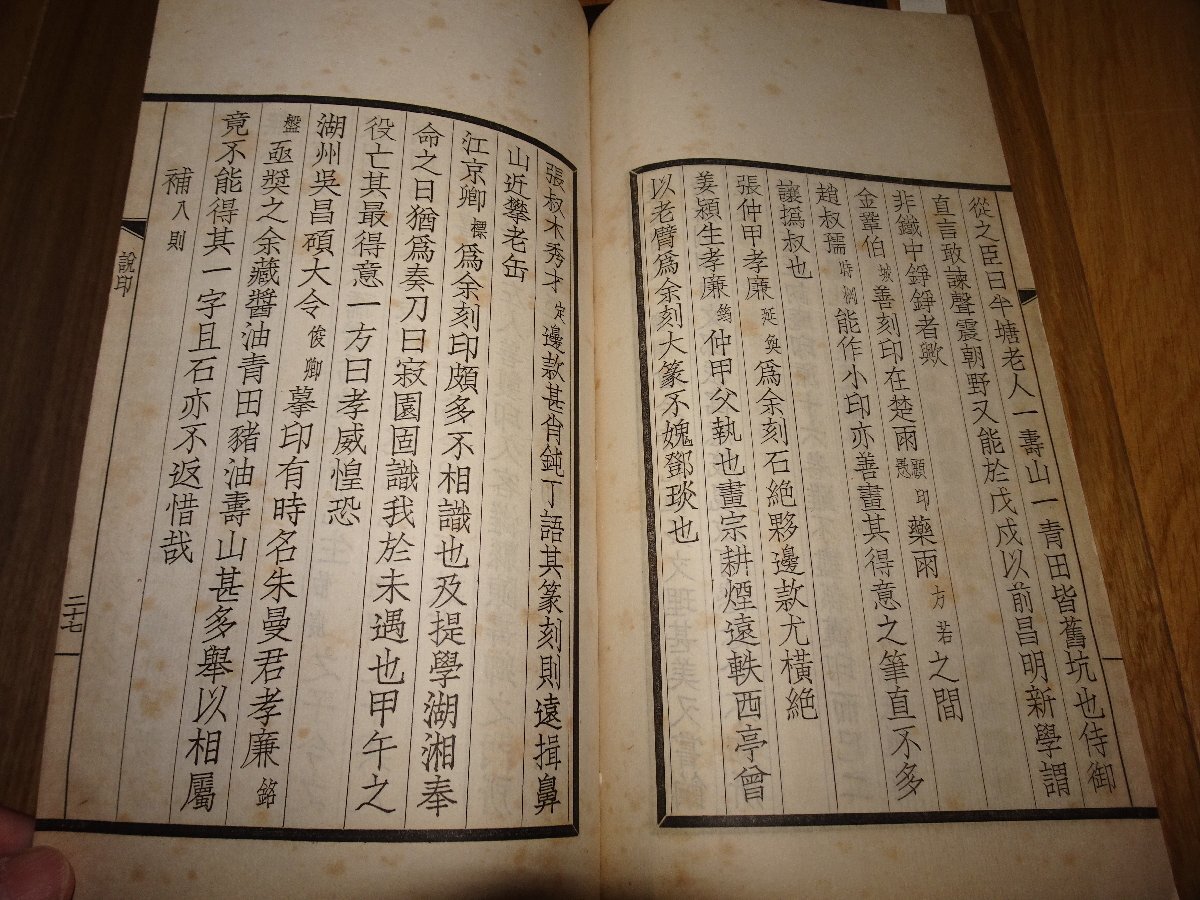 從之臣曰半塘老人一壽山一青田皆舊坑也侍御
直言敢諫聲震朝野又能於戊戌以前昌明新學謂
非鐵中錚錚者歟
金鞏伯城善刻印在楚雨顧印愚藥雨方若之間
趙叔孺時棡能作小印亦善畫其得意之筆直不多
讓撝叔也
張仲甲孝廉延奐為余刻石絶夥邊款尤橫絶
姜潁生孝廉筠仲甲父執也畫宗耕煙遠軼西亭曾
以老臂為余刻大篆不媿鄧琰也
張叔木秀才定邊款甚肖鈍丁語其篆刻則遠揖鼻
山近攀老缶
江京卿標為余刻印頗多不相識也及提學湖湘奉
命之日猶為奏刀曰寂園固識我於未遇也甲午之
役亡其最得意一方曰孝威惶恐
湖州吳昌碩大令俊卿摹印有時名朱曼君孝廉銘
盤亟奬之余藏醬油青田豬油壽山甚多舉以相屬
竟不能得其一字且石亦不返惜哉
補八則
說印
二十七